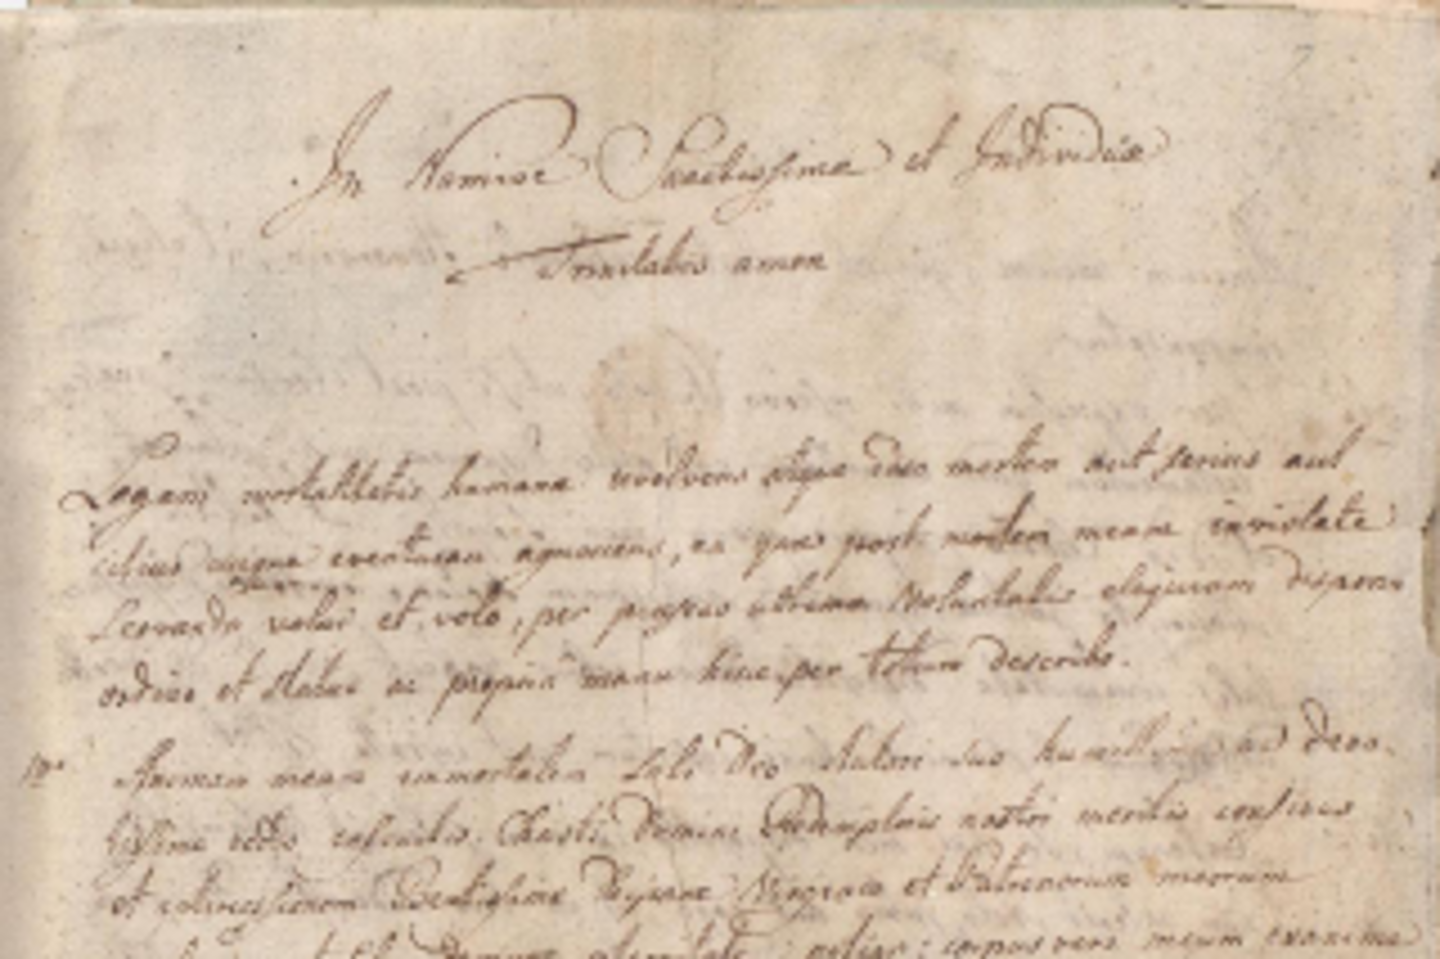 In Nomine Sanctissimae et Individuae
Trinitatis amen
Legem mortalitatis humanae revolvens atque diem mortem aut serius aut
citius eventuram agnoscens, ea quae post mortem meam inviolate
servanda volui et volo, per praesens ultimae Voluntatis elogium dispono
ordino et statuo ac propria manu hisce per totum describo.
1mo Animam meam immortalem soli Deo Autori suo humillime ac devo-
tissime Christi Domini Redemptoris nostri meritis confisus
et intercessionem Beatissimae Virginis et Patronorum meorum
corpus vero meum exanime